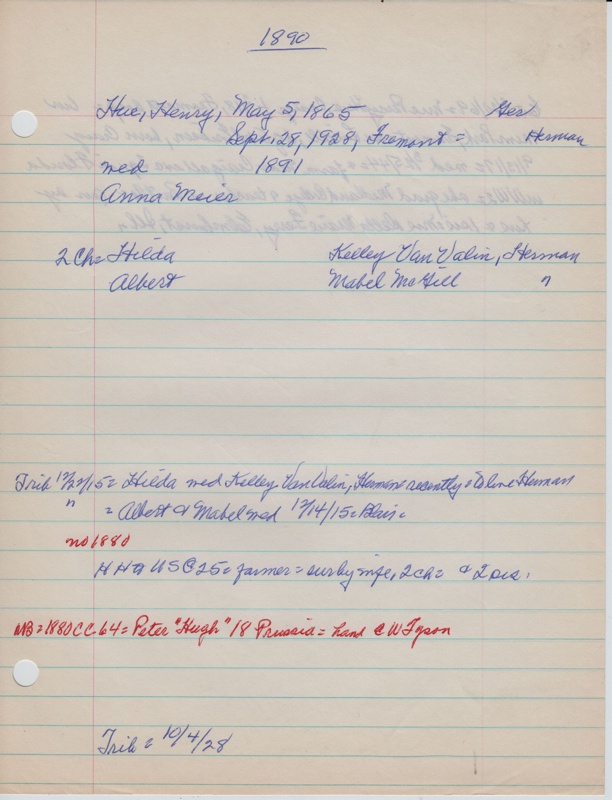 1890
Hue, Henry, May 5, 1865 Ger
Sept. 28, 1928, Fremont = Herman
med 1891
Anna Meier
2 Ch = Hilda Kelley Van Valin, Herman
Albert Mabel McGill "
Trib 12/27/15 = Hilda med Kelley Van Valin, Herman recently = to live Herman
" = Albert & Mabel med 12/14/15 = Blair =
no 1880
H H # U S C 25 = farmer = sur by wife, 2 ch = & 2 sis.
NB = 1880 CC 64 = Peter "Hugh" 18 Prussia = hand C W Tyson
Trib = 10/4/28